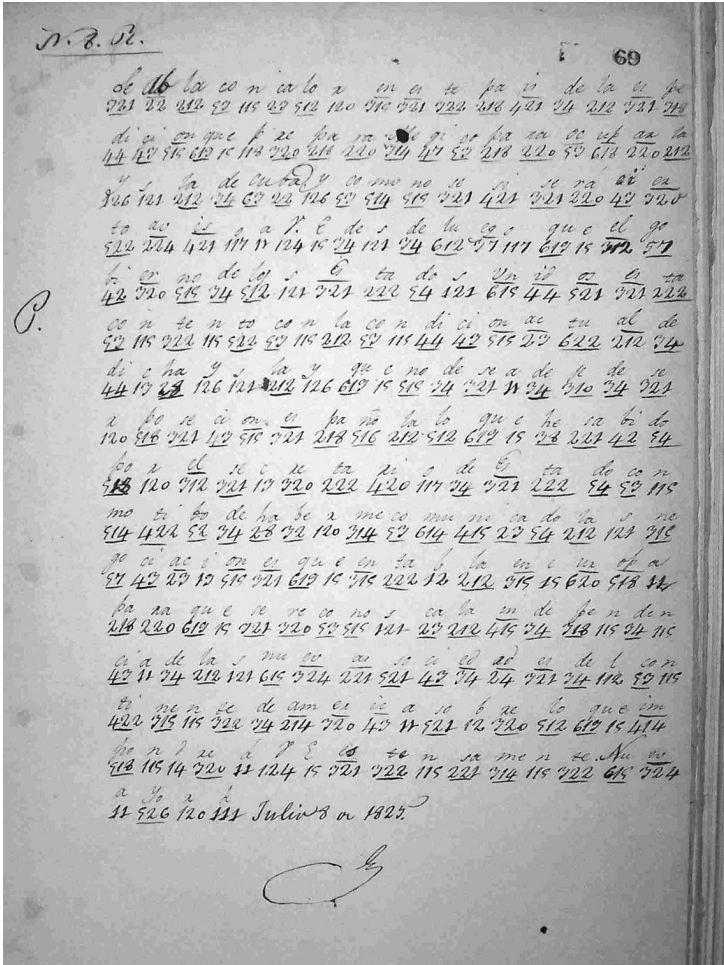 N. B. R.
69
Se ab la co n ca lo r en es te pa is de la es pe
321 22 212 53 115 23 512 120 315 321 322 218 421 34 212 321 318
di ci on que p re pa ra gi co pa ra oc up ar la
44 43 515 613 15 118 320 218 220 314 47 53 218 220 53 618 220 212
y s la de cuba y co mo no se si se rá ci er
126 121 212 34 63 22 126 53 514 515 321 421 321 220 43 320
to ac is o a V. E de s de lu eg o que el go
522 224 421 117 11 124 15 34 121 34 612 57 117 613 15 312 57
bi er no de lo s Es ta do s Un id os es ta
42 320 515 34 512 121 321 222 54 121 615 44 521 321 222
P.
co n te n to co n la co n di ci on ac tu al de
53 115 322 115 522 53 115 212 53 115 44 43 515 23 622 212 34
di c ha y s la y que no de se a de je de se
44 13 28 126 121 212 126 613 15 515 34 321 11 34 310 34 321
r po se ci on es pa ño la lo que he sa bi do
120 518 321 43 515 321 218 516 212 512 613 15 38 221 42 54
po r el se c re ta ri o de Es ta do con
518 120 312 321 13 320 222 420 117 34 321 222 54 53 115
mo ti bo de ha be r me co mu ni ca do la s ne
514 422 52 34 28 32 120 314 53 614 415 23 54 212 121 315
go ci ac i on es que en ta b la en e ur op a
57 43 23 19 515 321 613 15 315 222 12 212 315 15 620 518 11
pa ra que se re co no s ca la in de pe n de n
218 220 613 15 321 320 53 515 121 23 212 415 34 318 115 34 115
ci a de la s nu ev as so ci ed ad es de l con
43 11 34 212 121 615 324 221 521 43 34 24 321 34 112 53 115
ti nen te de am er ic a so b re lo que im
422 315 115 322 34 214 320 43 11 521 12 320 512 613 15 414
po n d re á V E es te n sa men te. Nu ev
518 115 14 320 11 124 15 321 322 115 221 314 115 322 615 324
a yo r k
11 526 120 111 Julio 8 de 1825.